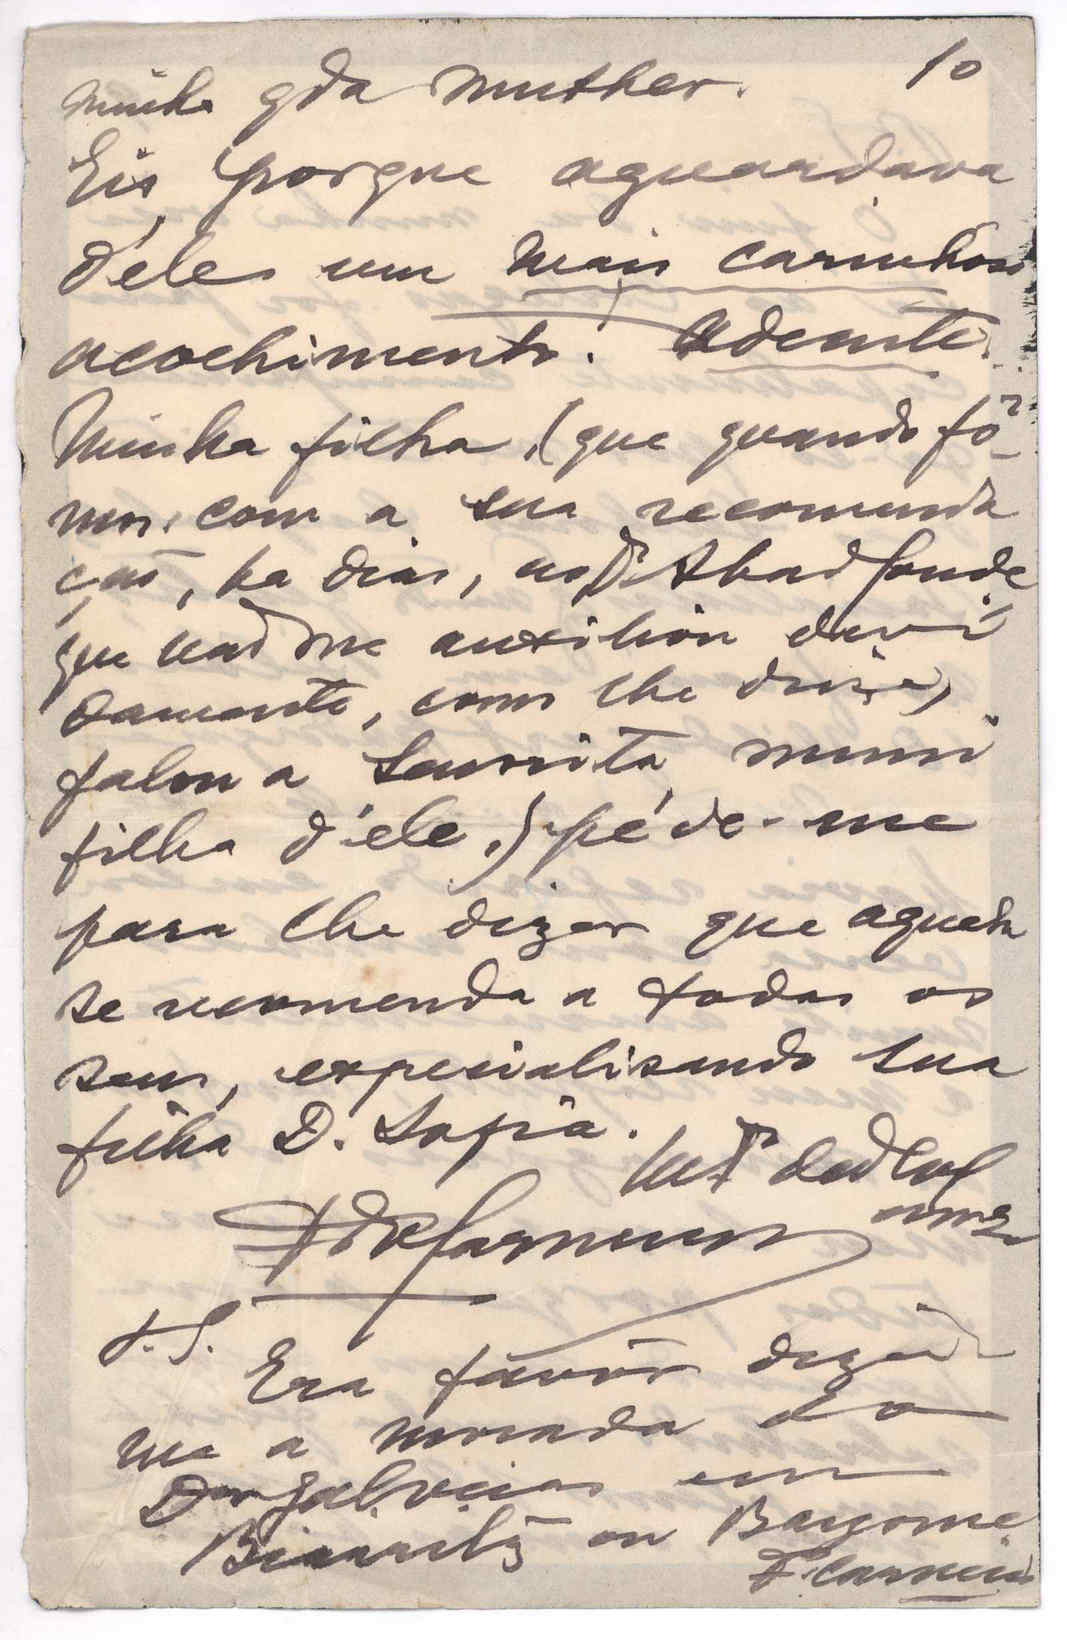 10
minha qda mulher.
Eis porque aguardava
d'eles um mais carinhoso
acolhimento. Adeante.
Minha filha, (que quando fô-
mos com a sua recomenda
ção, ha dias, ao Dr Abad Conde
que não me auxiliou devi
damente, como lhe disse,
falou a
filha d'ele,) péde-me
para lhe dizer que aquela
se recomenda a todos os
seus, especialisando sua
filha D. Sofia.
P.S.
Era favôr dizer
me a morada do
Dor em
Biarritz ou Bayonne